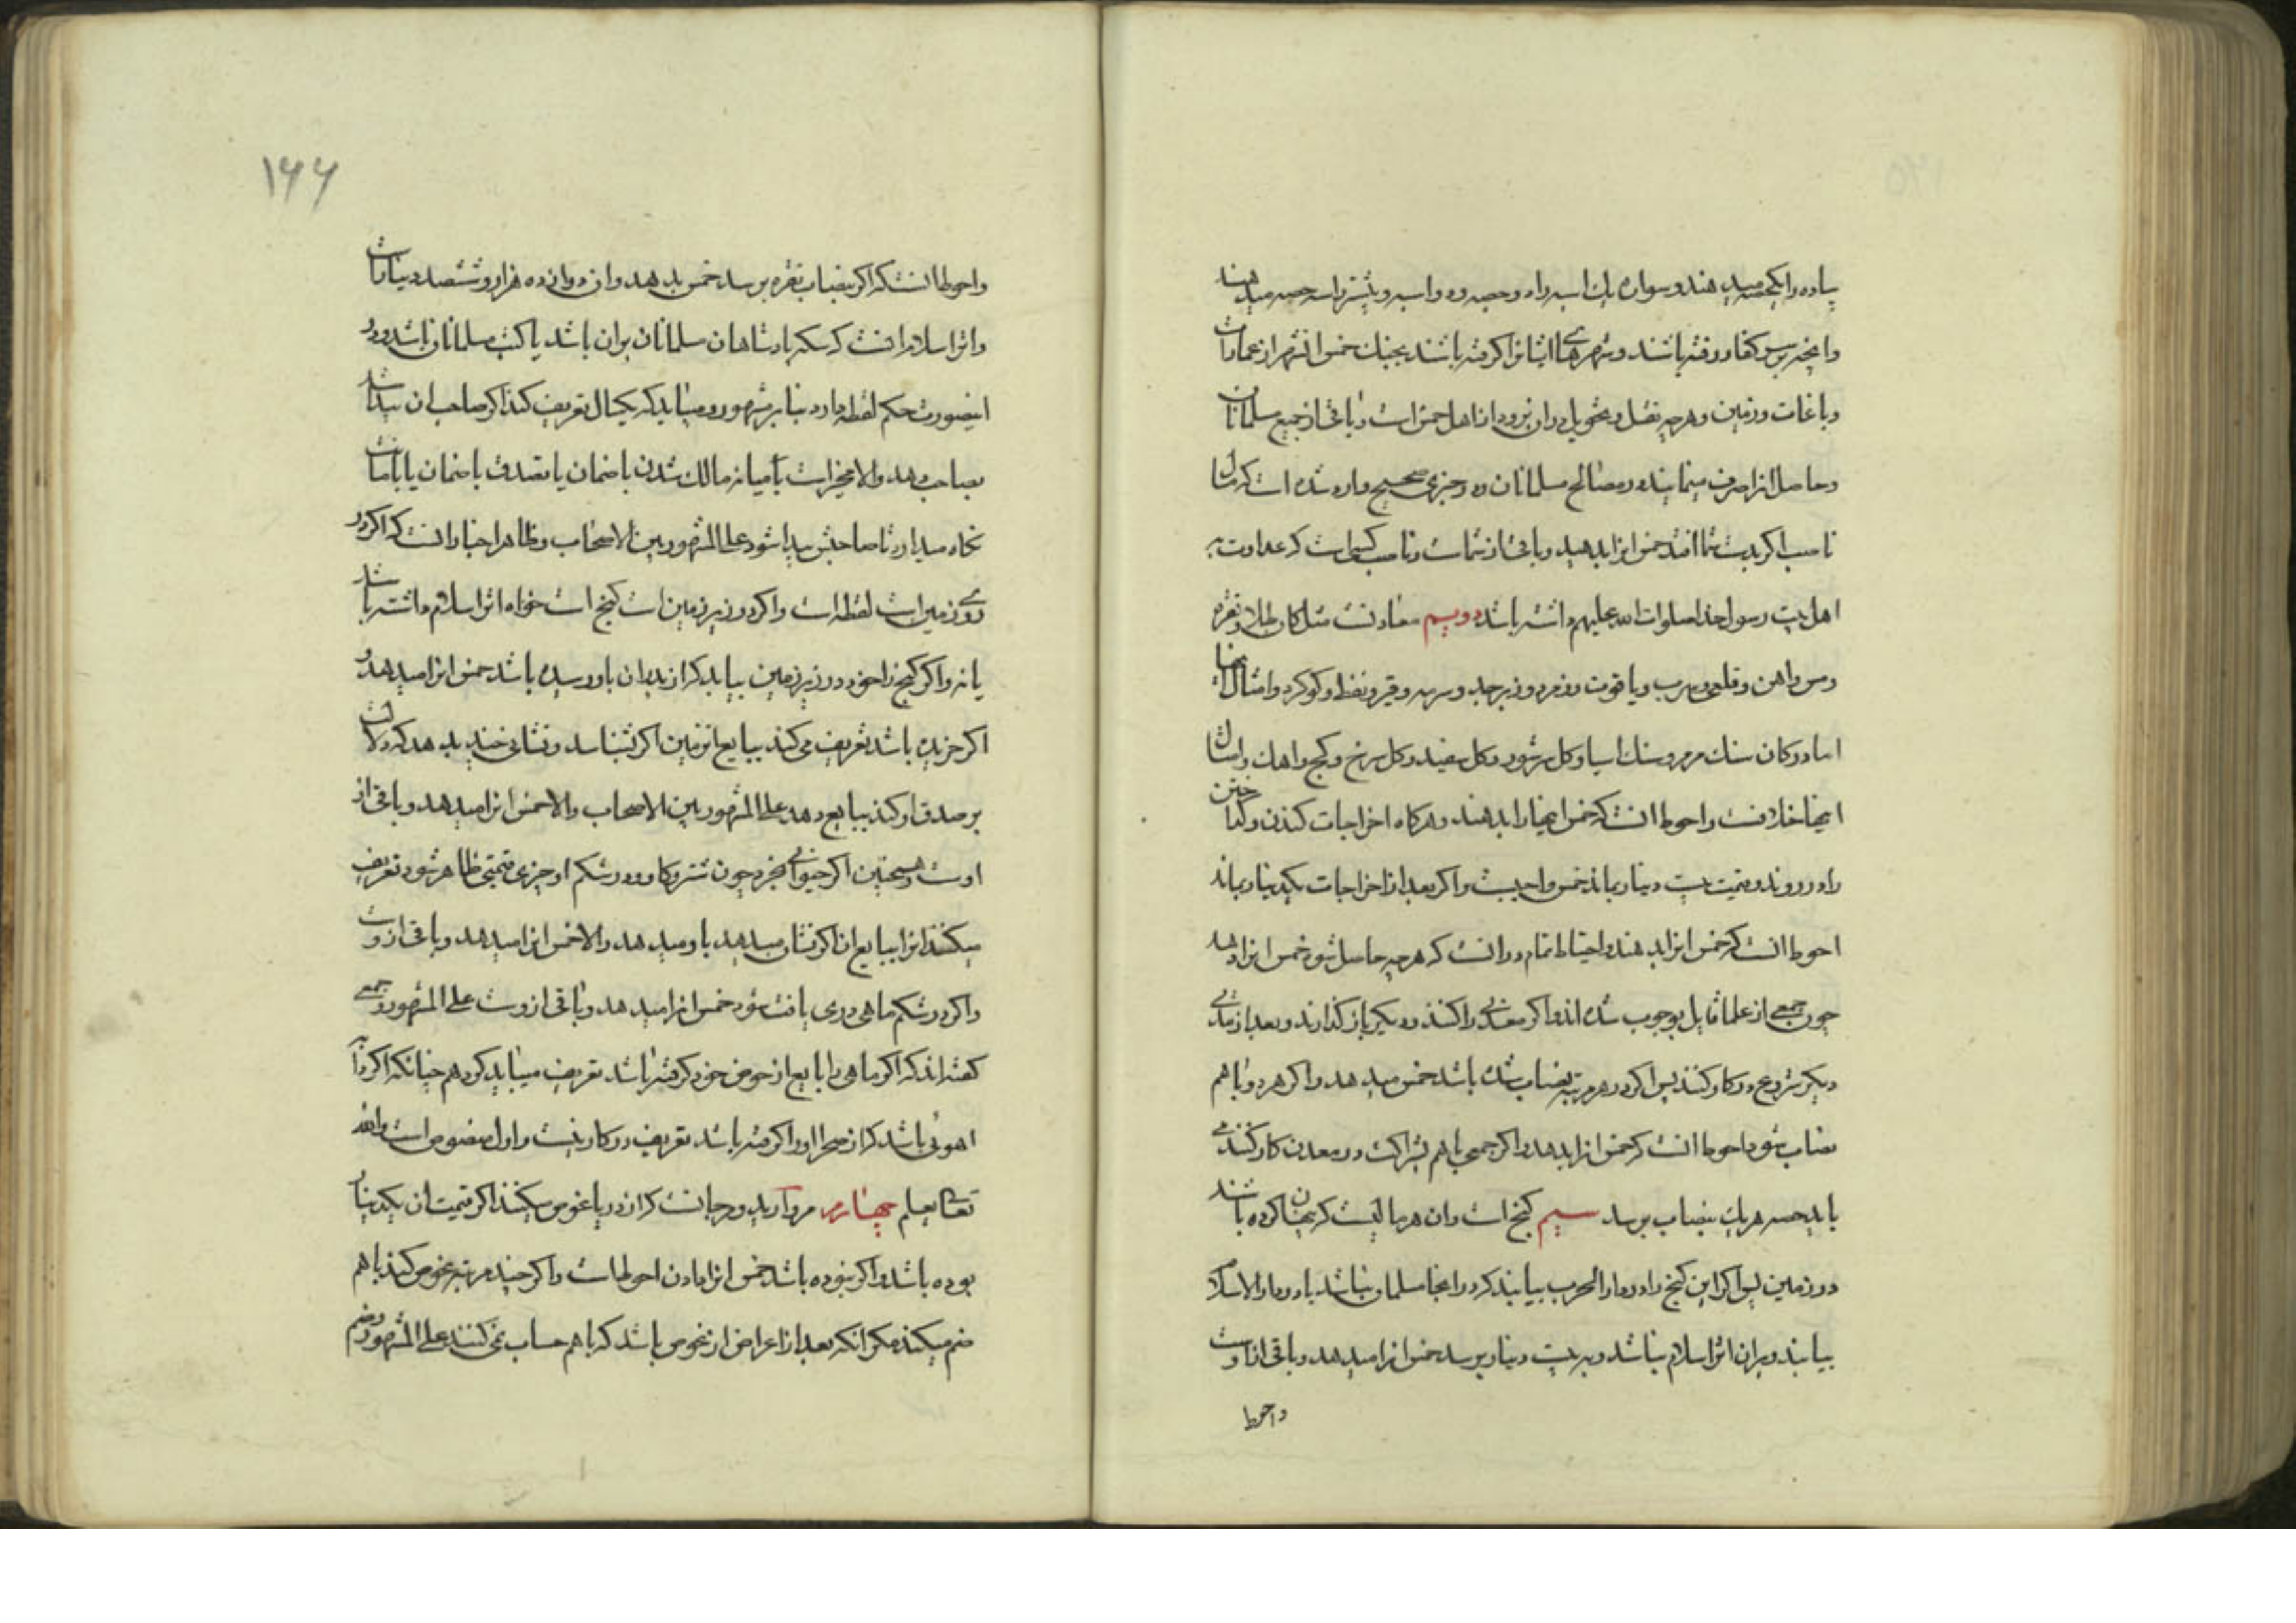 پیاده را یکحصه میدهند و سواره یک اسبه را دو حصه و دو اسبه و بیشتر را سه حصه میدهند
و آنچه بر سر کفار رفته باشند و شهرهای ایشانرا گرفته باشند بجنك خمس آن شهر از عمارات
و باغات و زمین و هرچه نقل و تحویل در آن نرود از اهل خمس است و باقی از جمیع مسلمانان
و حاصل آنرا صرف مینمایند در مصالح مسلمانان و در خبری صحیح وارد شده است که مال
ناصب اکر بدست شما افتد خمس آنرا بدهید و باقی از شماست و ناصب کسی است که عداوت به
اهل بیت رسول خدا صلوات الله علیهم داشته باشد دویم معادنست مثل کان طلا و نقره
و مس و آهن و قلعی و سرب و یاقوت و زمرد و زبرجد و سرمه و قیر و نفط و کوکرد و امثال اینها
اما در کان سنك مرمر و سنك آسیا و کل سرشور و کل سفید و کل سرخ و کچ و آهك و امثال
اینها خلافست و احوط آنست که خمس اینها را بدهند و هرکاه اخراجات کندن و کداختن
را در روند و قیمت بیست دینار بماند خمس واجبست و اکر بعد از اخراجات یکدینار بماند
احوط آنست که خمس آنرا بدهند و احتیاط تمام در آنست که هرچه حاصل شود خمس آنرا بدهند
چون جمعی از علما قایل بوجوب شده‌اند و اکر معدنی را کنند و دیکر باز کذارند و بعد از مدتی
دیکر شروع در کار کنند پس اکر در هر مرتبه بنصاب شده باشد خمس میدهد و اکر هر دو با هم
نصاب شود احوط آنست که خمس آنرا بدهد و اکر جمعی با هم بشراکت در معدن کار کنند می
باید حصه هریك بنصاب برسد سیم کنج است و آن هر مالیست که پنهان کرده باشند
در زمین پس اکر این کنج را در دار الحرب بیابند که در آنجا مسلمان نباشد یا در دار الاسلام
بیابند و بر آن اثر اسلام نباشد و به بیست دینار برسد خمس آنرا میدهد و باقی از اوست
و احوط
۱۶۶
و احوط آنست که اکر بنصاب نقره برسد خمس بدهد و آن دوازده هزار و ششصد دینار است
و اثر اسلام آنست که سکه پادشاهان مسلمانان بر آن باشد یا کتب مسلمانان باشد و در
اینصورت حکم لقطه دارد بنابر مشهور و میباید که یکسال تعریف کند اکر صاحب آن پیدا شد
بصاحب دهد و الا مخیر است میانه مالك شدن با ضمان یا تصدق با ضمان یا بامانت
نکاه میدارد تا صاحبش پیدا شود علی المشهور بین الاصحاب و ظاهر اخبار آنست که اکر در
روی زمین است لقطه است و اکر در زیر زمین است کنج است خواه اثر اسلام داشته باشد
یا نه و اکر کنج را خود در زیر زمین بیابد که از پدران باو رسیده باشد خمس آنرا میدهد و
اکر خریده باشد تعریف می‌کند ببایع آن زمین اکر بشناسد و نشانی چند بدهد که دلالت
بر صدق او کند ببایع دهد علی المشهور بین الاصحاب و الا خمس آنرا میدهد و باقی از
اوست و همچنین اکر حیوانی بخرد چون شتر و کاو و در شکم او چیزی قیمتی ظاهر شود تعریف
میکند آنرا ببایع آن اکر نشان میدهد باو میدهد و الا خمس آنرا میدهد و باقی از وست
و اکر در شکم ماهی دری یافت شود خمس آنرا میدهد و باقی از وست علی المشهور و جمعی
کفته‌اند که اکر ماهی را بایع از حوض خود کرفته باشد تعریف میباید کرد هم چنانکه اکر در
آهوئی باشد که از صحرا او را کرفته باشد تعریف در کار نیست و اول منصوص است والله
تعالی یعلم چهارم مروارید و مرجانست که از دریا غوص میکنند اکر قیمت آن یکدینار
بوده باشد و اکر نبوده باشد خمس آنرا دادن احوط است و اکر چند مرتبه غوص کند با هم
ضم میکند مکر آنکه بعد از اعراض از غوص باشد که با هم حساب نمی‌کنند علی المشهور و ضم